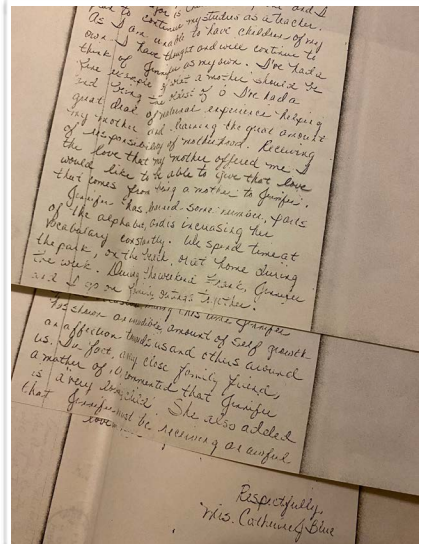 to continue my studies as a teacher.
As I am unable to have children of my
own I have thought and will continue to
think of Jennifer as my own. I've had a
fine example of what a mother should be
and being the oldest of 6 I've had a
great deal of maternal experience helping
my mother and learning the great amount
of responsibility of motherhood. Receiving
the love that my mother offered me I
would like to be able to give that love
that comes from being a mother to Jennifer.
Jennifer has learned some number, parts
of the alphabet, and is increasing her
vocabulary constantly. We spend time at
the park, or the beach, or at home during
the week. During the weekend Frank, Jennifer
and I go on family outings together.
this time Jennifer
has shown an incredible amount of self growth
an affection towards us and others around
us. In fact, any close family friend,
a mother of commented that Jennifer
is a very child. She also added
that Jennifer must be receiving an awful
love
Respectfully,
Mrs. Catherine J Blue